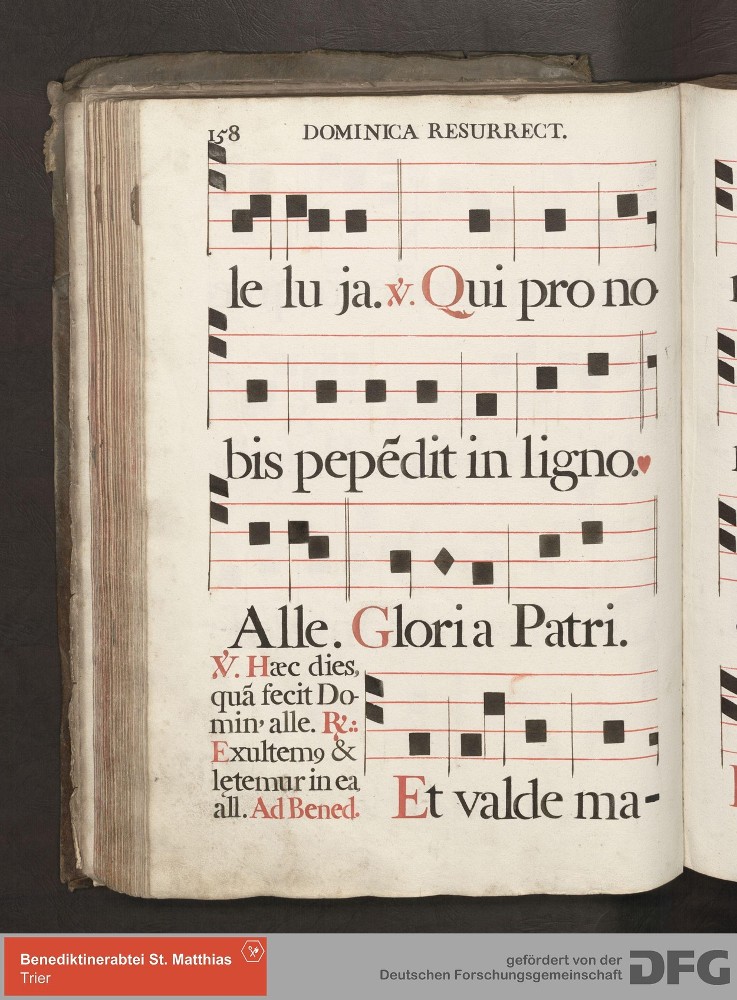 158 DOMINICA RESURRECT.
le lu ja. ℣. Qui pro no
bis pepẽdit in ligno.
Alle. Gloria Patri.
℣. Hæc dies,
quã fecit Do-
min, alle. ℟.:
Exultemꝯ &
lętemur in ea
all. Ad Bened.
Et valde ma-
Benediktinerabtei St. Matthias
Trier
gefördert von der
Deutschen Forschungsgemeinschaft
DFG